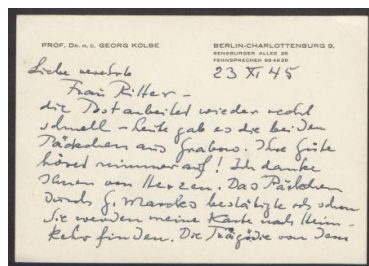 PROF. DR. H. C. GEORG KOLBE
BERLIN-CHARLOTTENBURG 9,
SENSBURGER ALLEE 25
FERNSPRECHER
23 XI 45
Liebe verehrte
Frau Ritter –
die Post arbeitet wieder recht
schnell – heute gab es die beiden
Päckchen aus Grabow. Ihre Güte
höret nimmer auf! Ich danke
Ihnen von Herzen. Das Päckchen
durch G. Marcks bestätigte ich schon
Sie werden meine Karte nach Heim-
kehr finden. Die Tragödie von